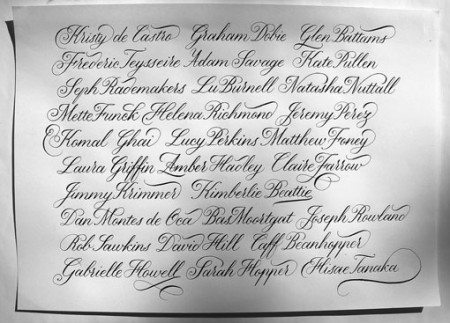 Kristy de Castro Graham Dobie Glen Battams
Frederic Teysseire Adam Savage Kate Pullen
Seph Rademakers Lu Burnell Natasha Nuttall
Mette Funck Helena Richmond Jeremy Perez
Komal Ghai Lucy Perkins Matthew Foney
Laura Griffin Amber Hadley Claire Farrow
Jimmy Krimmer Kimberlie Beattie
Dan Montes de Oca Bas Moortgat Joseph Rowland
Rob Sawkins David Hill Caff Beanhopper
Gabrielle Howell Sarah Hopper Hisae Tanaka